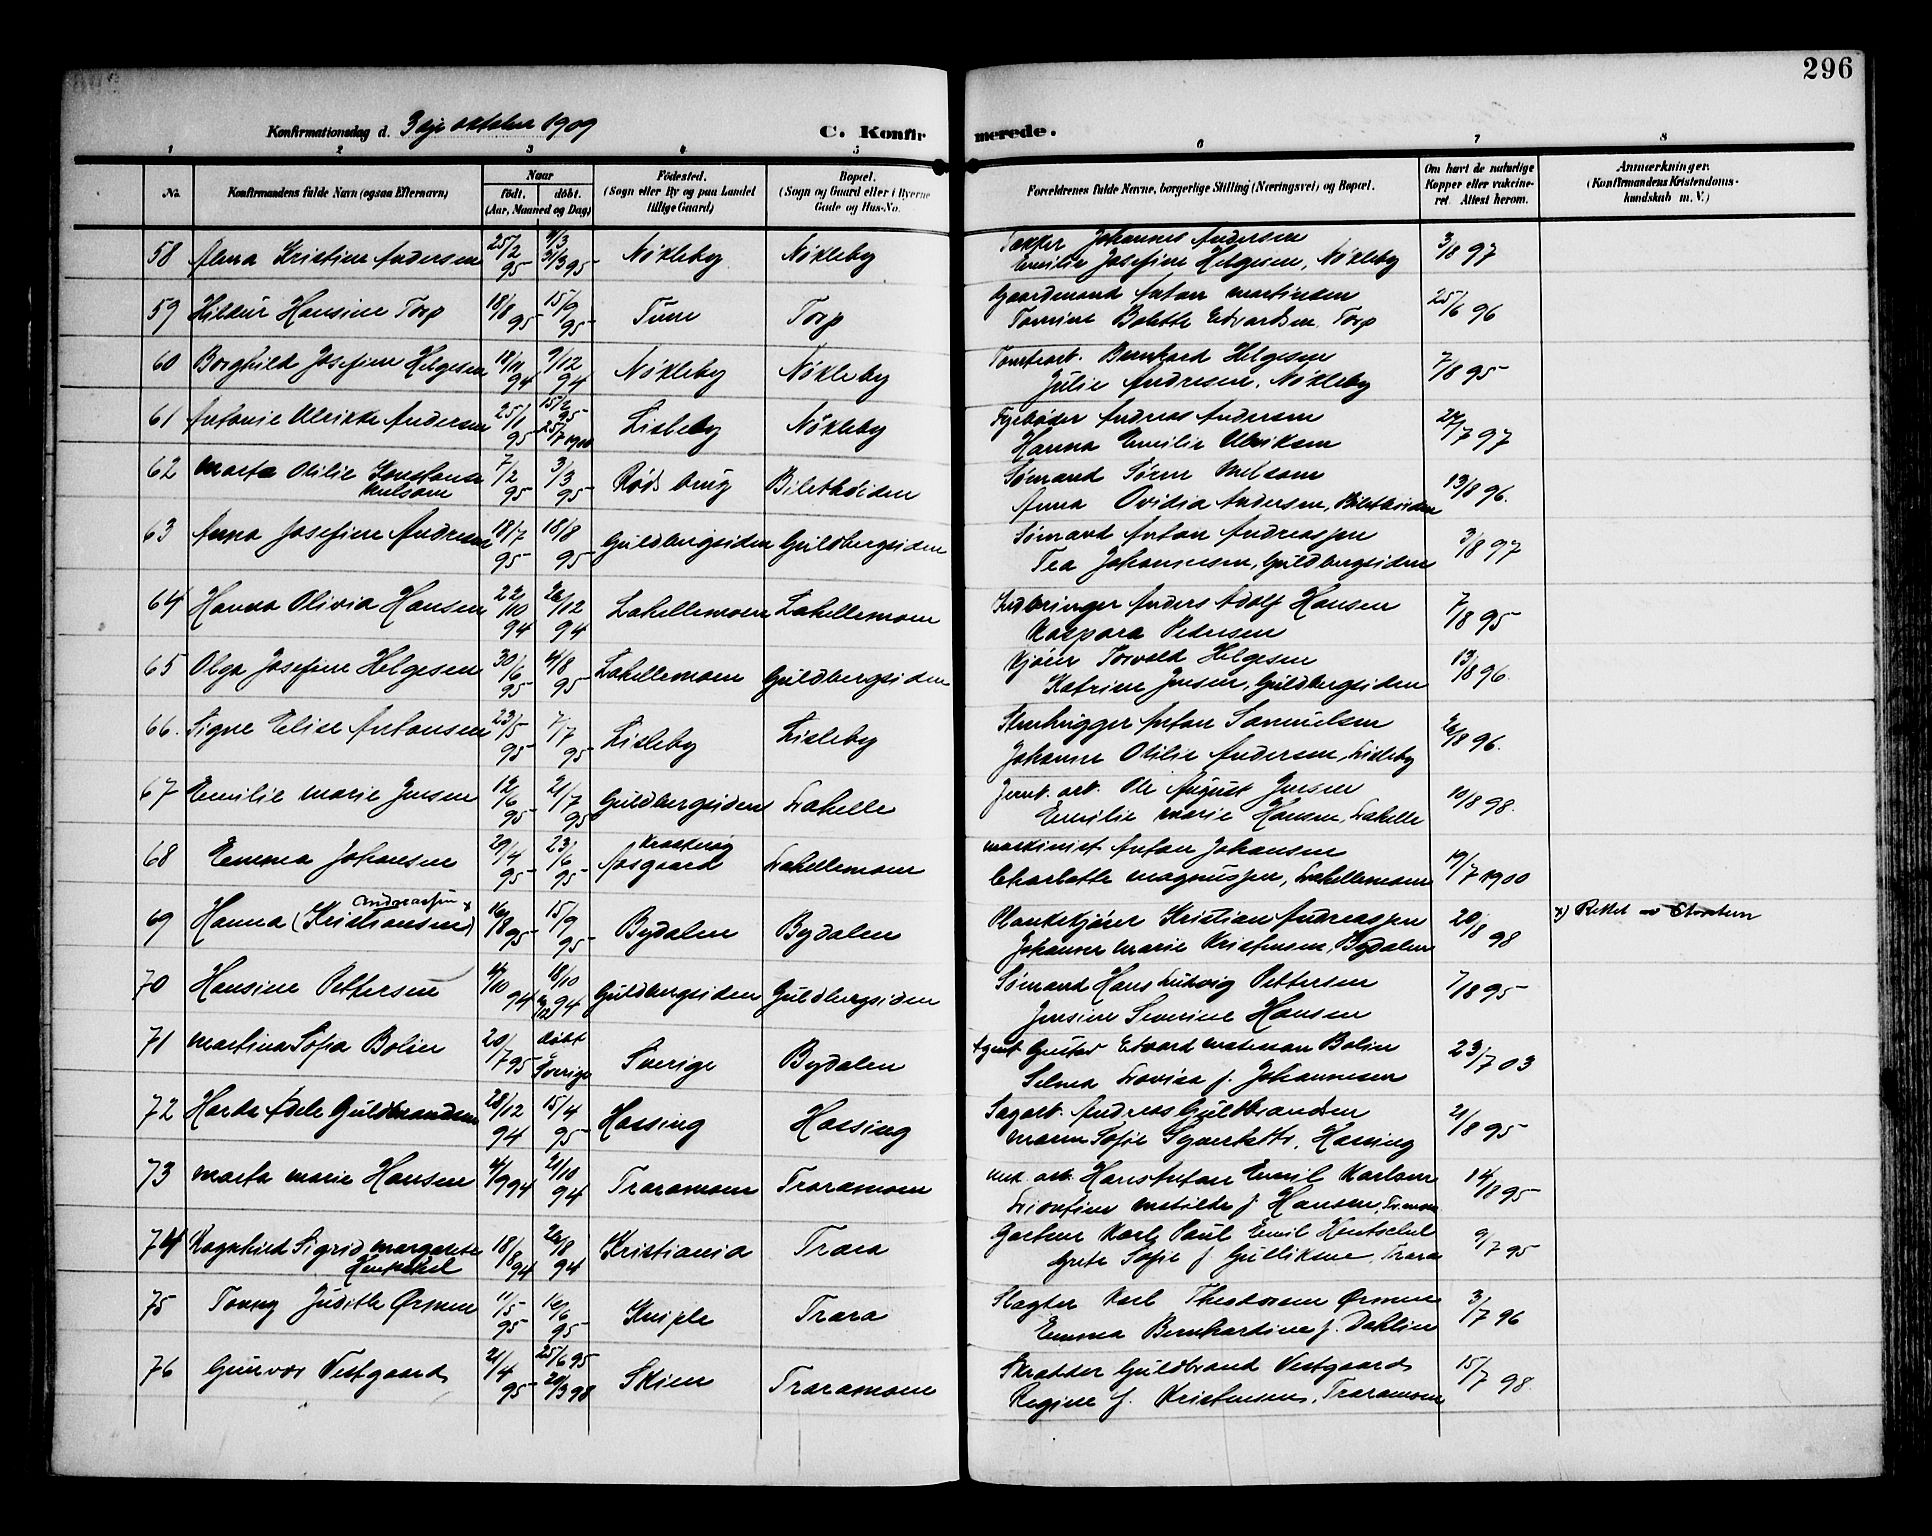 296
Konfirmationsdag d. 3dje oktober 1909
C. Konfirmerede.
1 2 3 4 5 6 7 8
No.
Konfirmandens fulde Navn (ogsaa Efternavn)
Naar
födt. döbt.
(Aar, Maaned og Dag)
Födested.
(Sogn eller By og paa Landet
tillige Gaard)
Bopæl.
(Sogn og Gaard eller i Byerne
Gade og Hus-No.
Forældrenes fulde Navne, borgerlige Stilling (Næringsvei) og Bopæl.
Om havt de naturlige
Kopper eller vakcine-
ret. Attest herom.
Anmærkninger.
(Konfirmandens Kristendoms-
kundskab m. V.)
58 Alma Kristine Andersen 25/2 95 3/3 95 Nökleby Nökleby Takker Johannes Andersen 3/8 97
Emilie Josefine Helgesen, Nökleby
59 Hildur Hansine Torp 18/8 95 15/9 95 Tune Torp Gaardmand Anton Martinsen 25/6 96
Tomine Bolette Edvardsen, Torp
60 Borghild Josefine Helgesen 18/11 94 9/12 94 Nökleby Nökleby Tomtearb. Bernhard Helgesen 7/8 95
Julie Andresen, Nökleby
61 Antonie Ulrikke Andersen 25/1 95 15/2 95 25/7 1900 Lisleby Nökleby Fyrböder Andreas Andersen 27/7 97
Hanna Emilie Ulriksen
62 Marta Otilie Konstanse Melsom 7/2 95 3/3 95 Röds brug Biletthöiden Sömand Sören Melsom 13/8 96.
Anna Ovidia Andersen, Biletthöiden
63 Anna Josefine Andresen 18/7 95 18/8 95 Guldbergsiden Guldbergsiden Sömand Anton Andreasen 3/8 97
Tea Johannesen, Guldbergsiden
64 Hanna Olivia Hansen 22/10 94 26/12 94 Lahellemoen Lahellemoen Indbringer Anders Adolf Hansen 7/8 95
Kaspara Pedersen
65 Olga Josefine Helgesen 30/6 95 4/8 95 Lahellemoen Guldbergsiden Kjörer Torvald Helgesen 13/8 96.
Katrine Jensen, Guldbergsiden
66. Signe Elise Antonsen 23/5 95 7/7 95 Lisleby Lisleby Stenhugger Anton Samuelsen 26/8 96.
Johanne Otilie Andersen, Lisleby
67 Emilie Marie Jensen 12/6 95 21/7 95 Guldbergsiden Lahelle Jernb. arb. Ole August Jensen 10/8 98.
Emilie Marie Hansen, Lahelle
68 Emma Johansen 29/4 95 23/6 95 Kraakerøy Aasgaard Lahellemoen Maskinist Anton Johansen 19/7 1900
Charlotte Magnussen, Lahellemoen
69 Hanna (Kristiansen) Andreassen x 16/8 95 15/9 95 Bydalen Bydalen Plankekjörer Kristian Andreassen 20/8 98 x) Rettet av
Johanne Marie Kristensen, Bydalen
70 Hansine Pettersen 4/10 94 18/10 94 Guldbergsiden Guldbergsiden Sömand Hans Ludvig Pettersen 7/8 95
Jensine Severine Hansen
71 Martina Sofia Bolin 20/7 95 döbt i Sverige Sverige Bydalen Agent Gustav Edvard Bolin 23/7 03
Selma Lovisa f. Johannesen
72 Harda Adele Guldbrandsen 28/12 94 15/4 95 Hassing Hassing Sagarb. Andreas Guldbrandsen 21/8 95
Maren Sofie Syvertsdtr, Hassing
73 Marta Marie Hansen 4/9 94 21/10 94 Traramoen Traramoen Mek. arb. Hans Anton Emil Karlsen 14/8 95
Leontine Matilde f. Hansen, Tr.moen
74 Ragnhild Sigrid Margarete Hentschel 18/8 94 26/8 94 Kristiania Trara Gartner Karl Paul Emil Hentschel 9/7 95
Grete Sofie f. Gulliksen, Trara
75 Tonny Judith Örsmen 11/5 95 16/6 95 Kniple Trara Slagter Karl Theodorsen Örsmen 3/7 96
Emma Bernhardine f. Dahlin
76 Gunvor Vestgaard 21/4 95 25/6 95 20/3 98 Skien Traramoen Skrædder Guldbrand Vestgaard 15/7 98.
Regine f. Kristensen, Traramoen